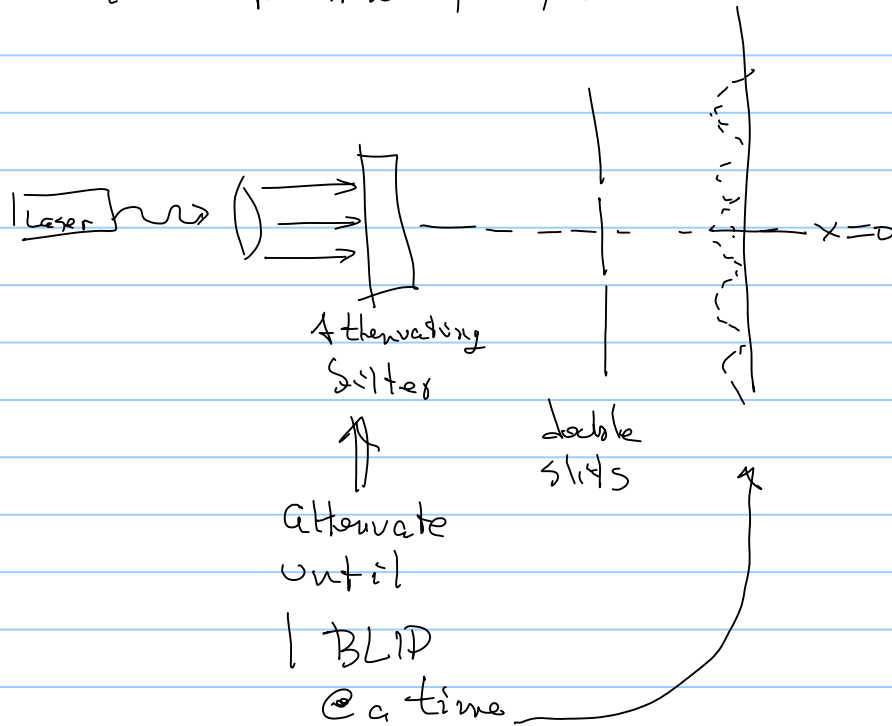 Laser
x=0
Attenuating
filter
double
slits
attenuate
until
1 BLIP
@ a time